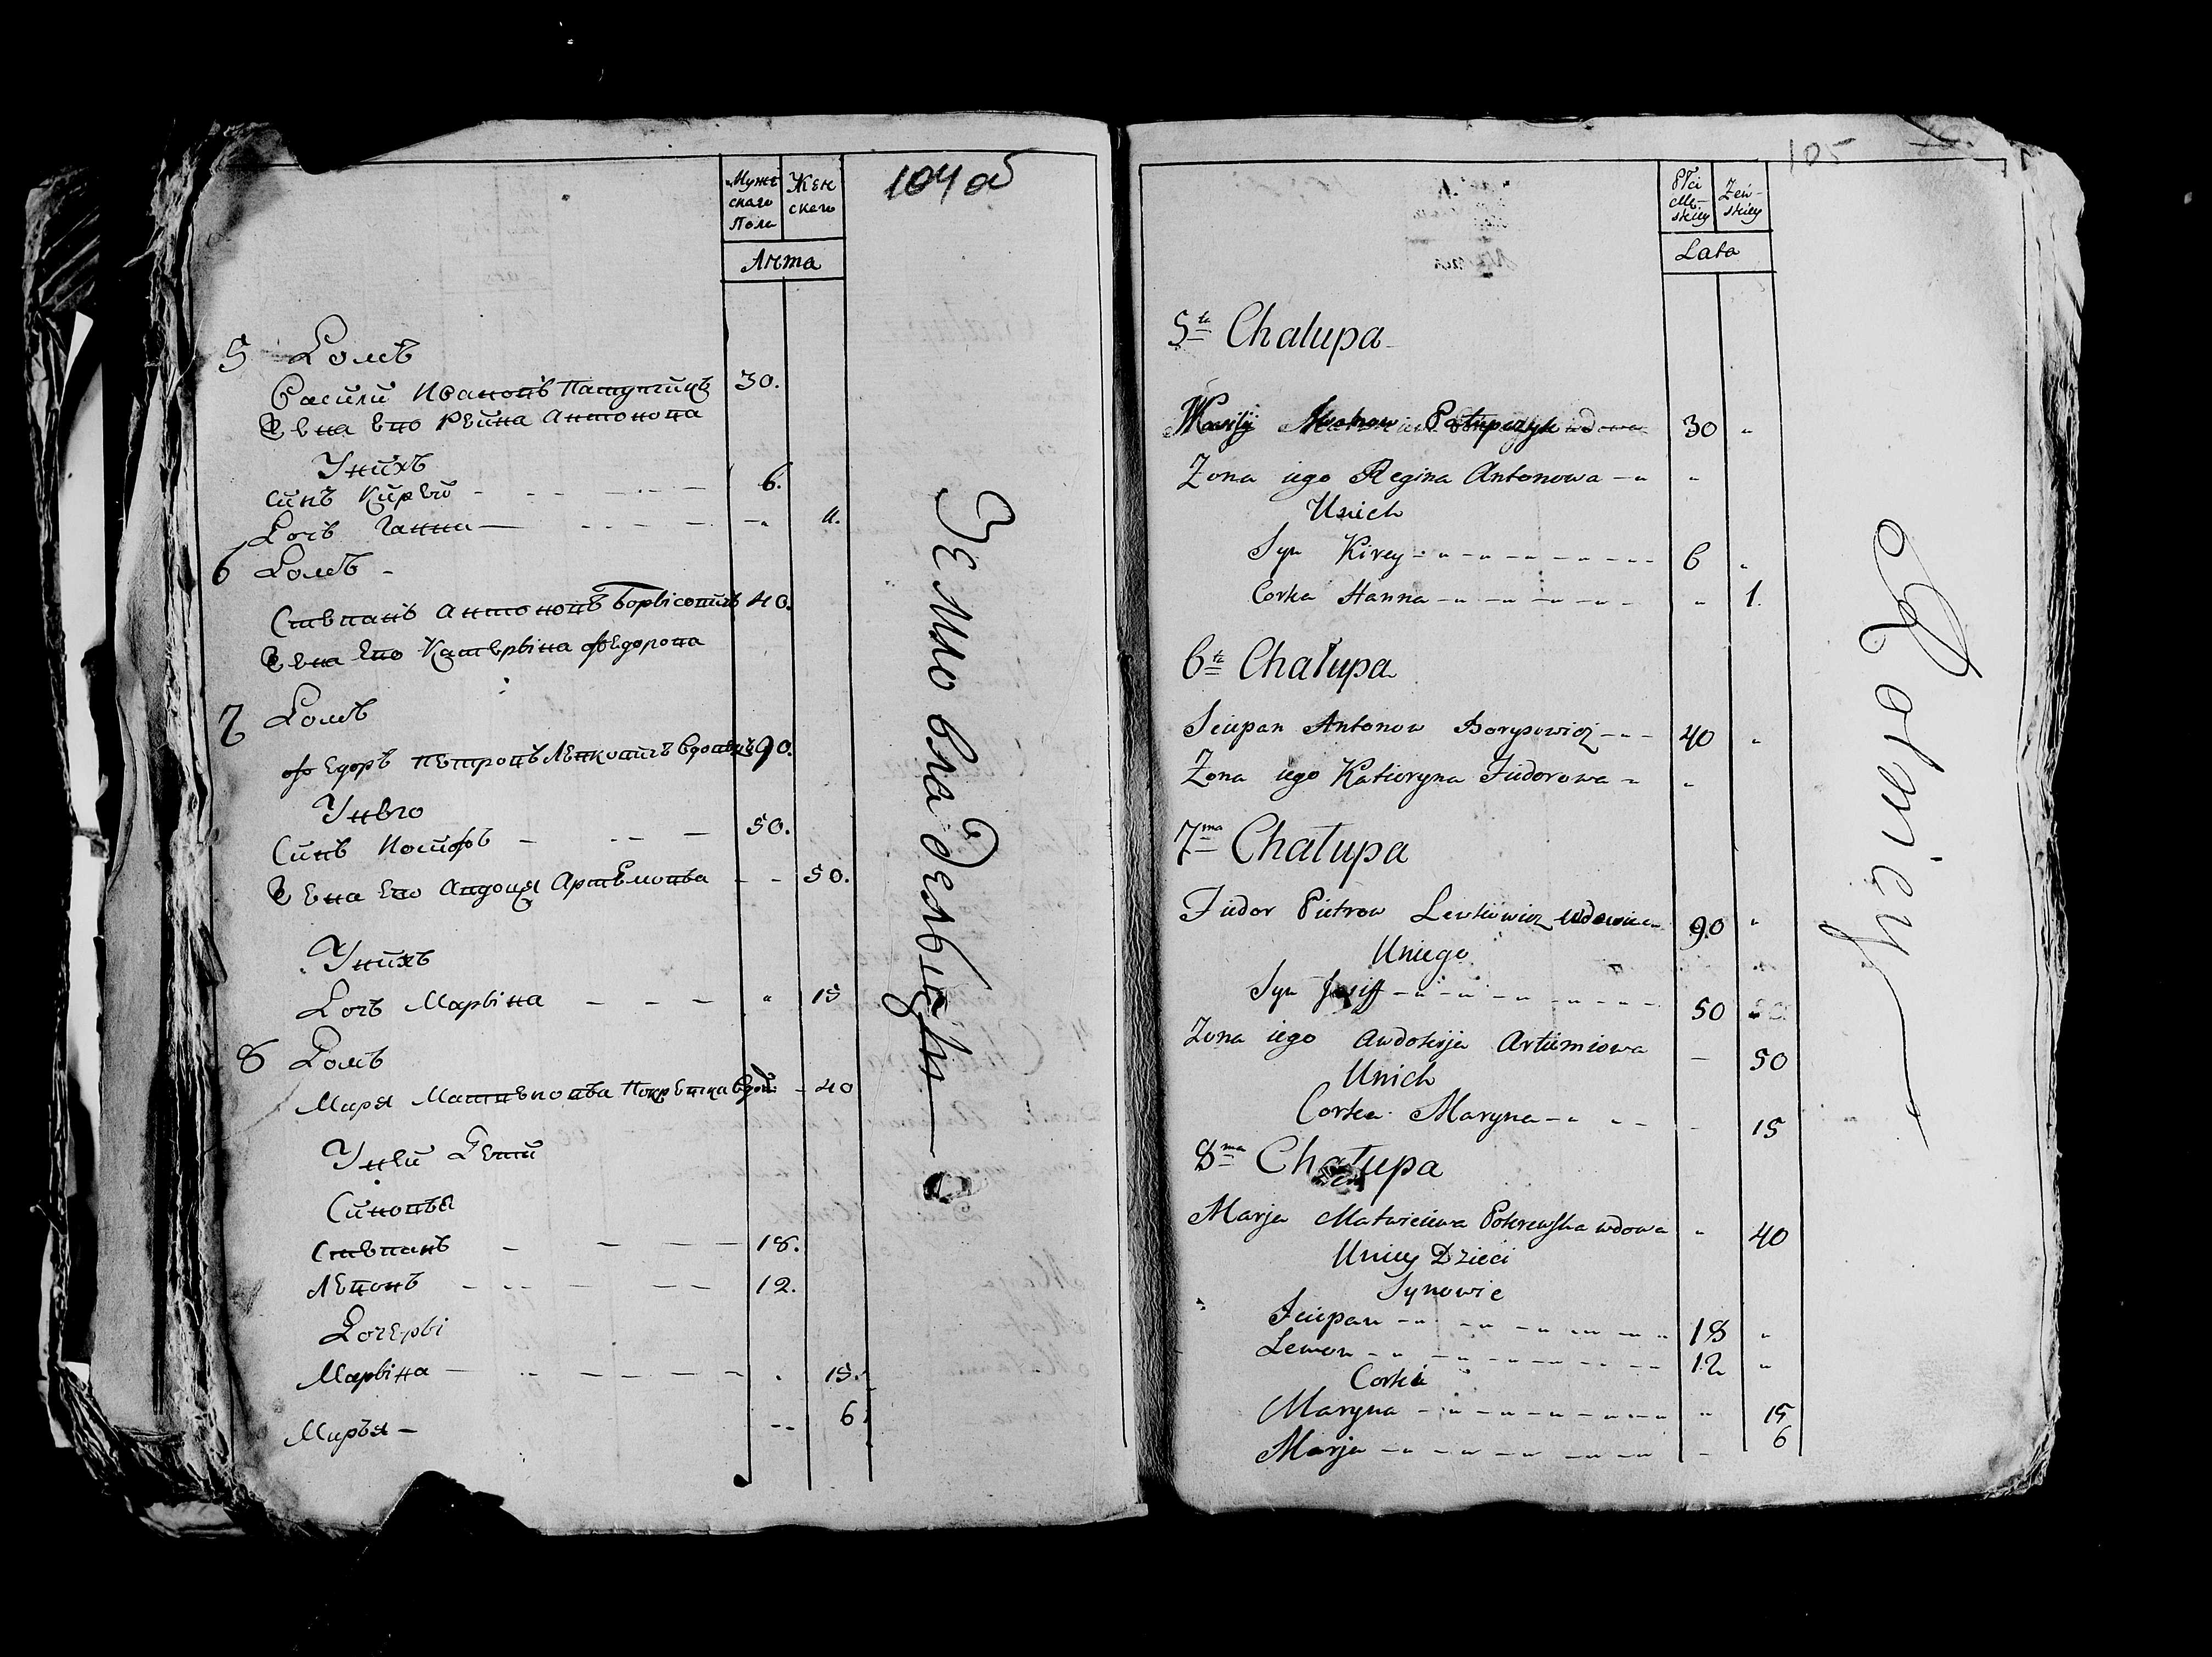 104 об
Мужескаго Пола
Женскаго
Лѣта
5 Домъ
Василий Ивановъ Патупчикъ 30.
Жена его Реина Антонова
У нихъ
Синъ Кирей - - - - 6.
Дочь Ганна - - - - 1.
6 Домъ -
Степанъ Антоновъ Борысовичъ 40.
Жена его Катерына Федорова
7 Домъ
Федоръ Петровъ Левковичъ вдовецъ 90.
У него
Синъ Иосифъ - - - - 50.
Жена его Авдоция Артемовва - - 50.
У нихъ
Дочь Марына - - - " 15
8 Домъ
Маря Матвеповва Покревска вдов: - 40
У ней Дети
Синовья
Степанъ - - - - 18.
Левонъ - - - - - 12.
Дочеры
Марына - - - - - 15.
Маръя - -- 6
Землевладельцы
105
Płci Męskiey
Żeńskiey
Lata
5ta Chalupa
Wasilij Iwanow Patupczyk 30 "
Zona iego Regina Antonowa - " "
Unich
Syn Kirey - " - " - " - 6 "
Corka Hanna - " - " - " - " 1.
6ta Chałupa
Sciepan Antonow Borysowicz - - - 40 "
Zona iego Katieryna Fiedorowa - "
7ma Chałupa
Fiedor Pietrow Lewkowicz Wdowiec 90 "
Uniego
Syn Josiff - " - " - " - 50
Zona iego Awdokija Artiemiowa - 50
Unich
Corka Maryna - " - " - - 15
8ma Chałupa
Marja Matwieiewa Pokrewska wdowa " 40
Uniey Dzieci
Synowie
Sciepan - " - " - " - " 18 "
Lewon - " - " - " - " 12 "
Corki
Maryna - " - " - " - " " 15
Marja - " - " - " - " - 6
Rolnicy